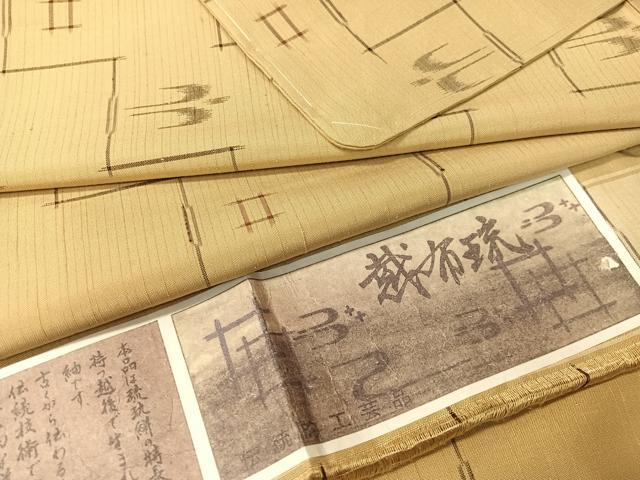 琉有越
伝統的工芸品
本品は琉球絣の特長
持つ越後で生まれ
紬です
古くから伝わる
伝統技術で